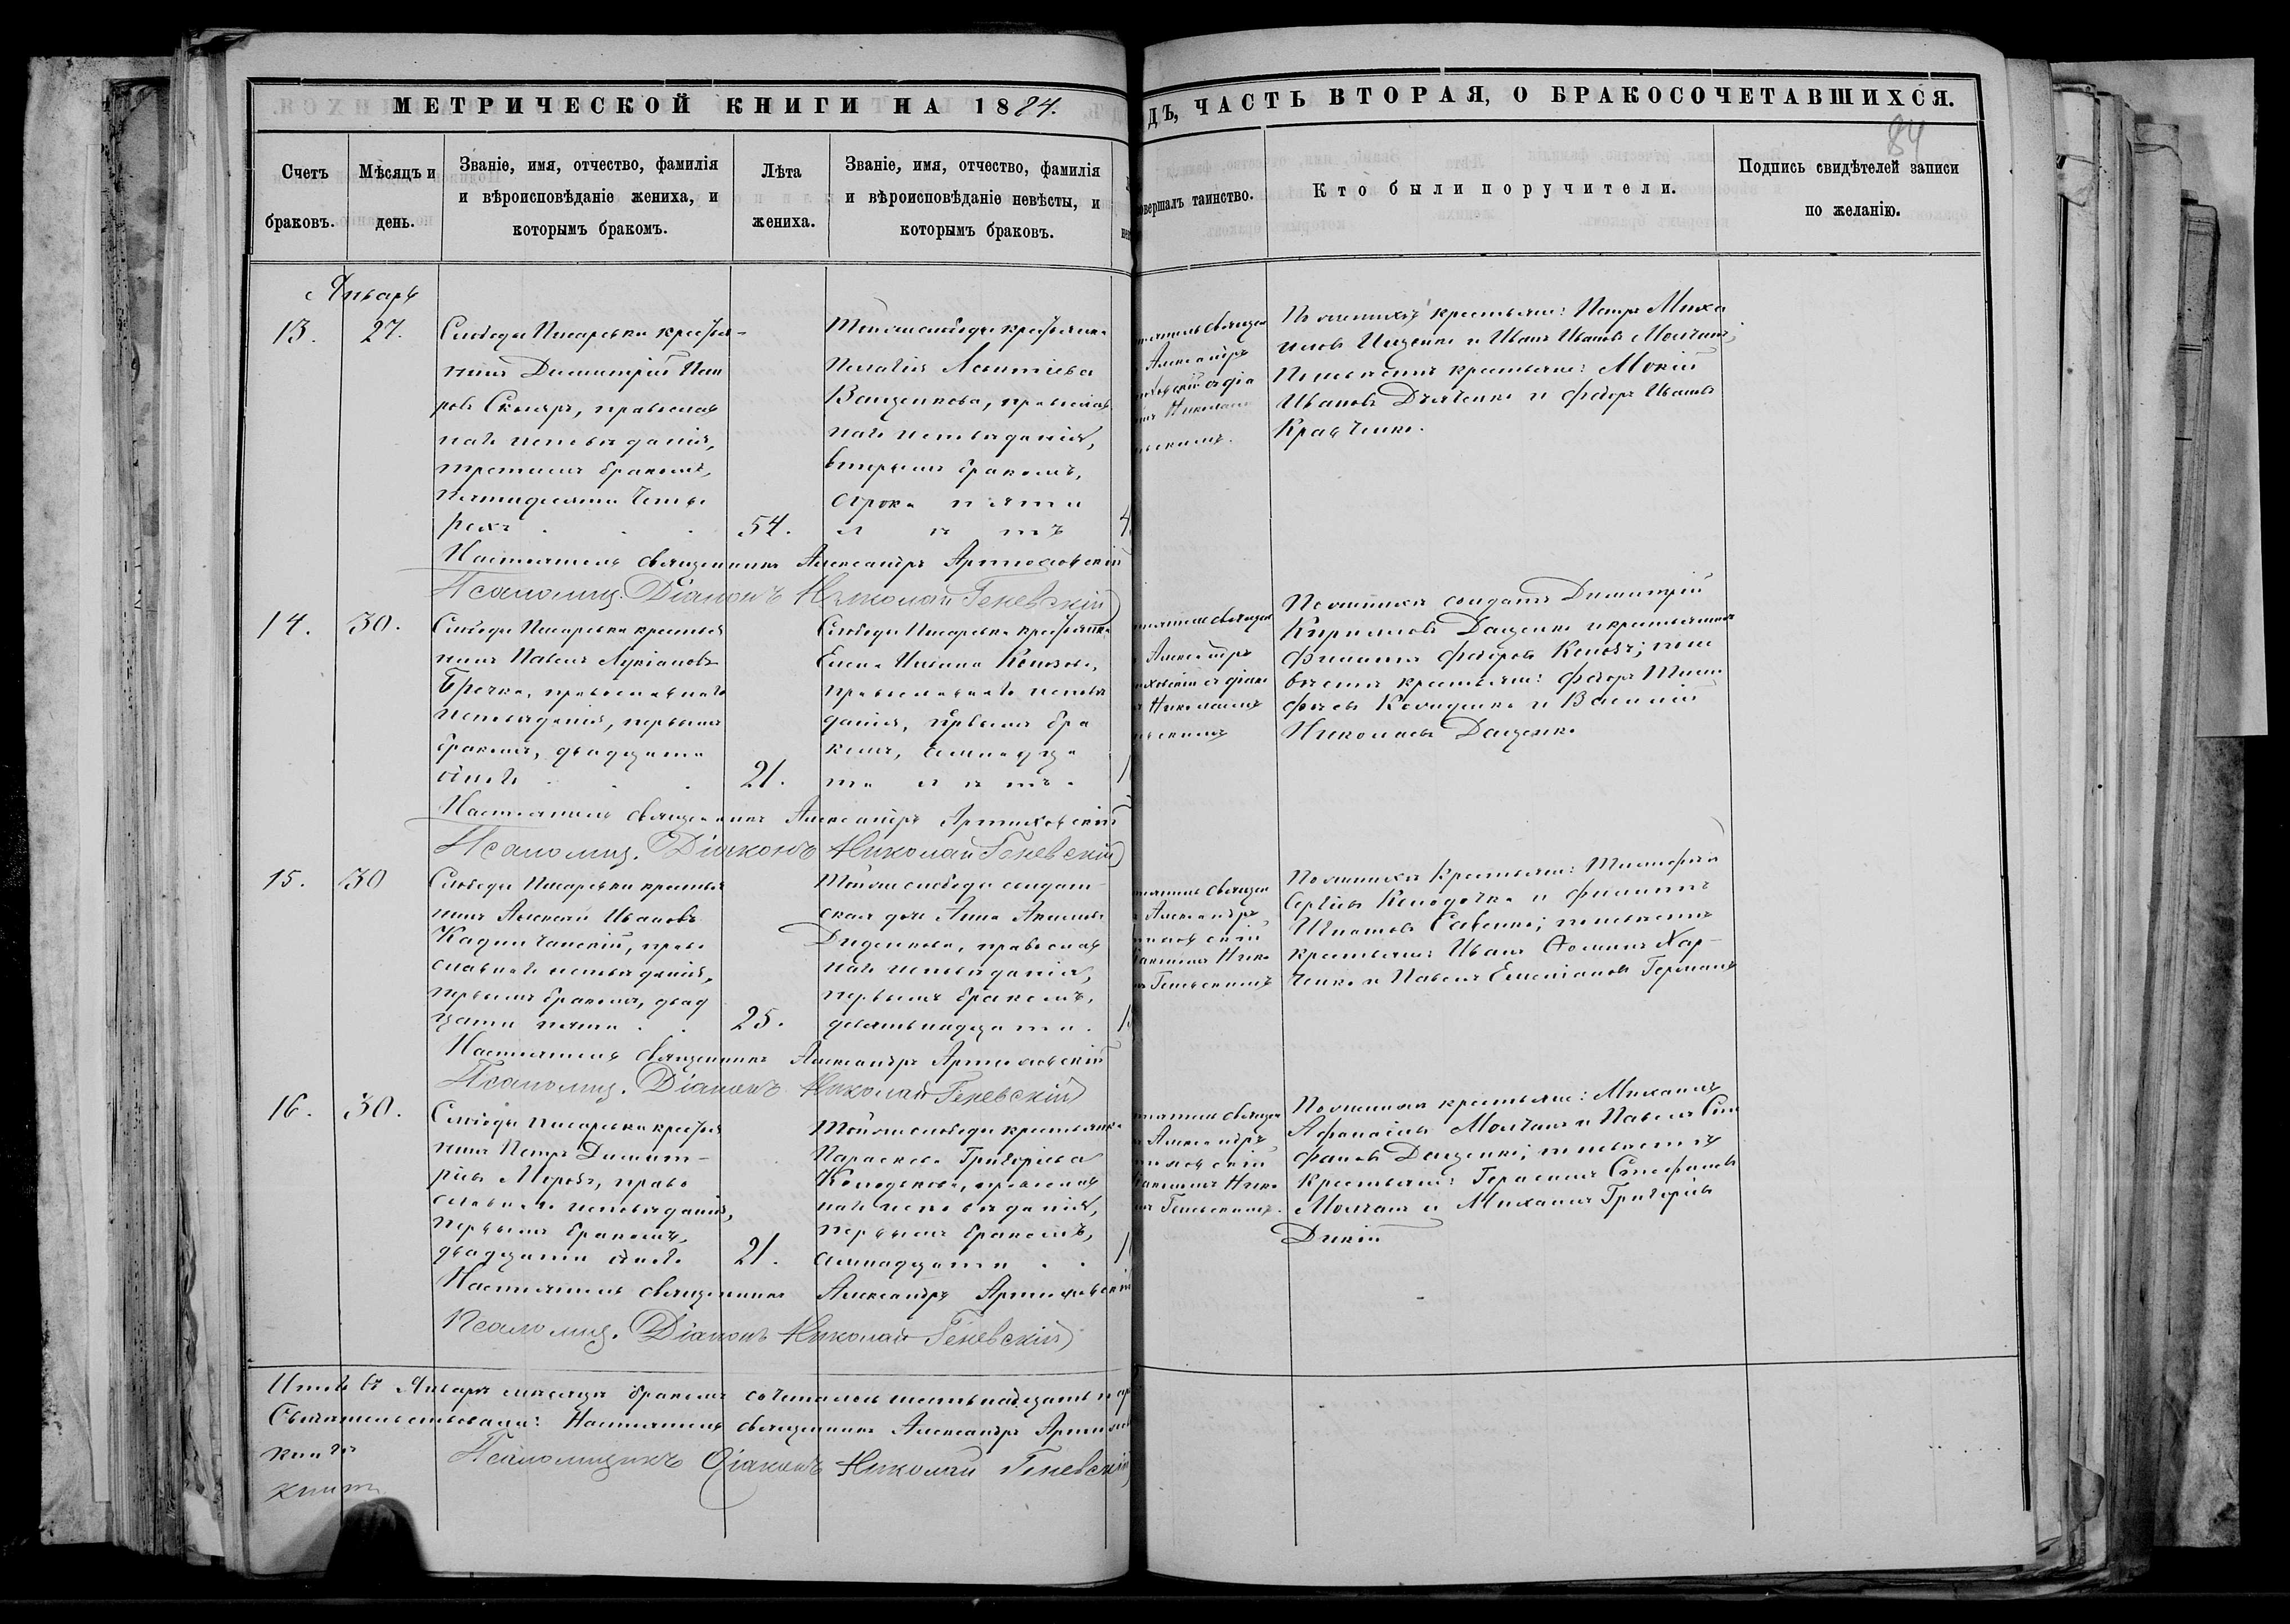 МЕТРИЧЕСКОЙ КНИГИ НА 1884.
ДЪ, ЧАСТЬ ВТОРАЯ, О БРАКОСОЧЕТАВШИХСЯ.
84
Счетъ браковъ.
Мѣсяцъ и день.
Званіе, имя, отчество, фамилія и вѣроисповѣданіе жениха, и которымъ бракомъ.
Лѣта жениха.
Званіе, имя, отчество, фамилія и вѣроисповѣданіе невѣсты, и которымъ браковъ.
овершалъ таинство.
Кто были поручители.
Подпись свидѣтелей записи по желанію.
Январь
13.
27.
Слободы Писаревки крестья-
нинъ Димитрій Пет
ровъ Скляръ, православ
наго исповѣданія,
третьимъ бракомъ,
пятидесяти четы
рехъ
54.
Тойже слободы крестьянка
Пелагія Леонтіева
Ващенкова, православ
наго исповѣданія,
вторымъ бракомъ,
сорока пяти
лѣтъ
4
Александръ
Николаем
По женихѣ крестьяне: Петръ Миха
иловъ Ищенко и Иванъ Ивановъ Молчанъ;
По невѣстѣ крестьяне: Мокій
Ивановъ Дьяченко и Ѳедоръ Ивановъ
Кравченко.
Настоятель священникъ Александръ Артюховскій
Псаломщ. Діаконъ Николай Геневскій
14.
30.
Слободы Писаревки крестья
нинъ Павелъ Лукіановъ
Гречка, православнаго
исповѣданія, первымъ
бракомъ, двадцати
одного
21.
Слободы Писаревки крестьянка
Елена Ивановна
православнаго исповѣ
данія, первымъ бра
комъ, семнадца
ти лѣтъ.
1
Александръ
Николаемъ
По женихѣ солдатъ Димитрій
Кирилловъ Даценко и крестьянинъ
Филиппъ Ѳедоровъ Коновъ; по не
вѣстѣ крестьяне: Ѳедоръ Тимо
фѣевъ и Василій
Николаевъ Даценко
Настоятель священникъ Александръ Артюховскій
Псаломщ. Діаконъ Николай Геневскій
15.
30
Слободы Писаревки крестья
нинъ Алексѣй Ивановъ
Кадигчанскій, право
славнаго исповѣданія,
первымъ бракомъ, двад
цати пяти
25.
Тойже слободы солдат
ская дочь Анна Акимова
Диденкова, православ
наго исповѣданія,
первымъ бракомъ,
девятнадцати.
1
Александръ
Нико
Геневскимъ
По женихѣ крестьяне: Тимофей
Сергѣевъ Колодочка и Филиппъ
Игнатовъ Савенко; по невѣстѣ
крестьяне: Иванъ Ѳоминъ Хар-
ченко и Павелъ Емеліановъ Германъ
Настоятель священникъ Александръ Артюховскій
Псаломщ. Діаконъ Николай Геневскій
16.
30.
Слободы Писаревки крестья
нинъ Петръ Димит-
ріевъ Моровъ, право
славнаго исповѣданія,
первымъ бракомъ,
двадцати одного
21.
Тойже слободы крестьянка
Параскева Григоріева
Колодькова, православ
наго исповѣданія,
первымъ бракомъ,
семнадцати
1
Александръ
Нико
Геневскимъ.
По женихѣ крестьяне: Михаилъ
Афанасіевъ Молчанъ и Павелъ Сте
фановъ Даценко; по невѣстѣ
Крестьяне: Герасимъ Стефановъ
Молчанъ и Михаилъ Григоріевъ
Дикій
Настоятель священникъ Александръ Артюховскій
Псаломщ. Діаконъ Николай Геневскій
Итого въ Январѣ мѣсяцѣ бракомъ сочеталось шестьнадцать пар
Свидѣтельствовали: Настоятель священникъ Александръ Артюхов
Псаломщикъ Діаконъ Николай Геневскій